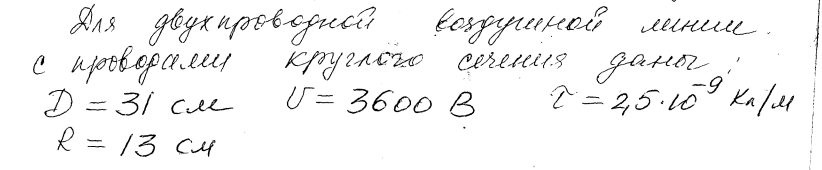 Для двухпроводной воздушной линии
с проводами круглого сечения даны:
D = 31 см U = 3600 В τ = 2,5·10⁻⁹ Кл/м
R = 13 см